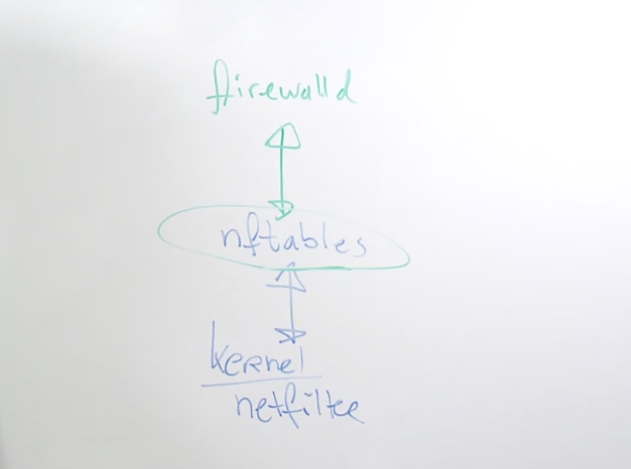 firewalld
nftables
kernel
netfilte